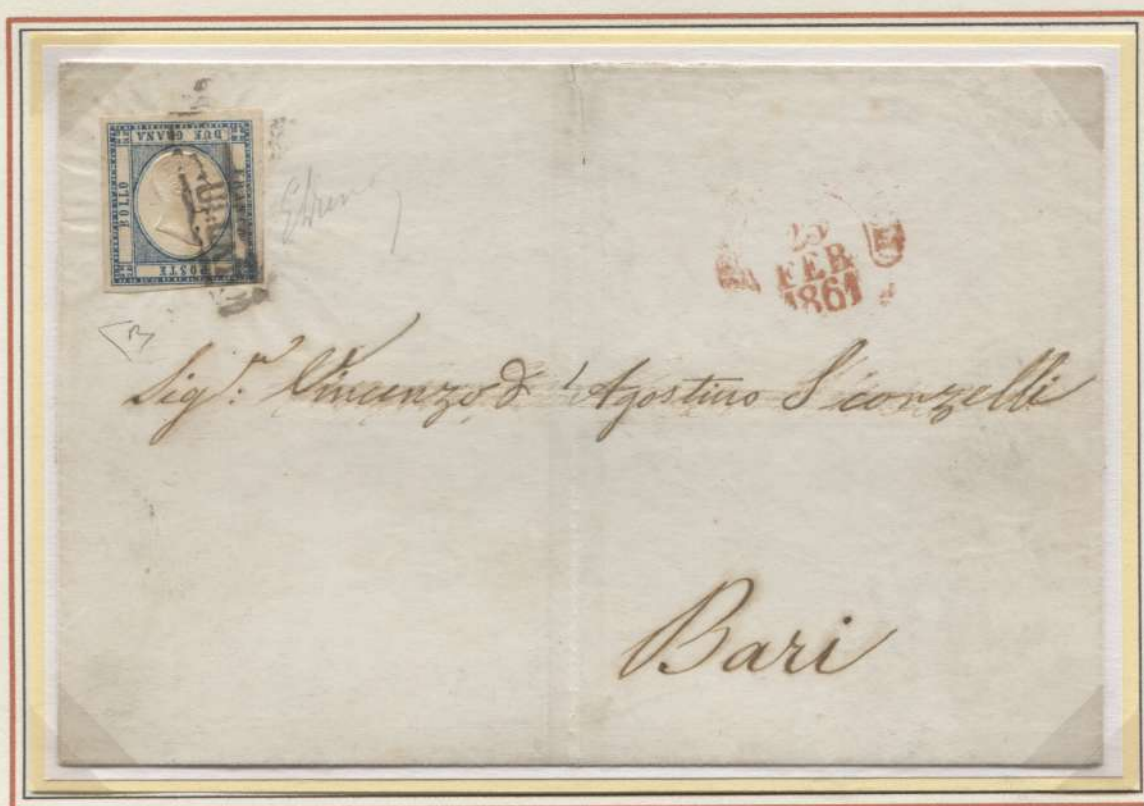 DUE GRANA
BOLLO
POSTE
FEB
1861
Sig.r: Vincenzo d'Agostino Sconzelli
Bari